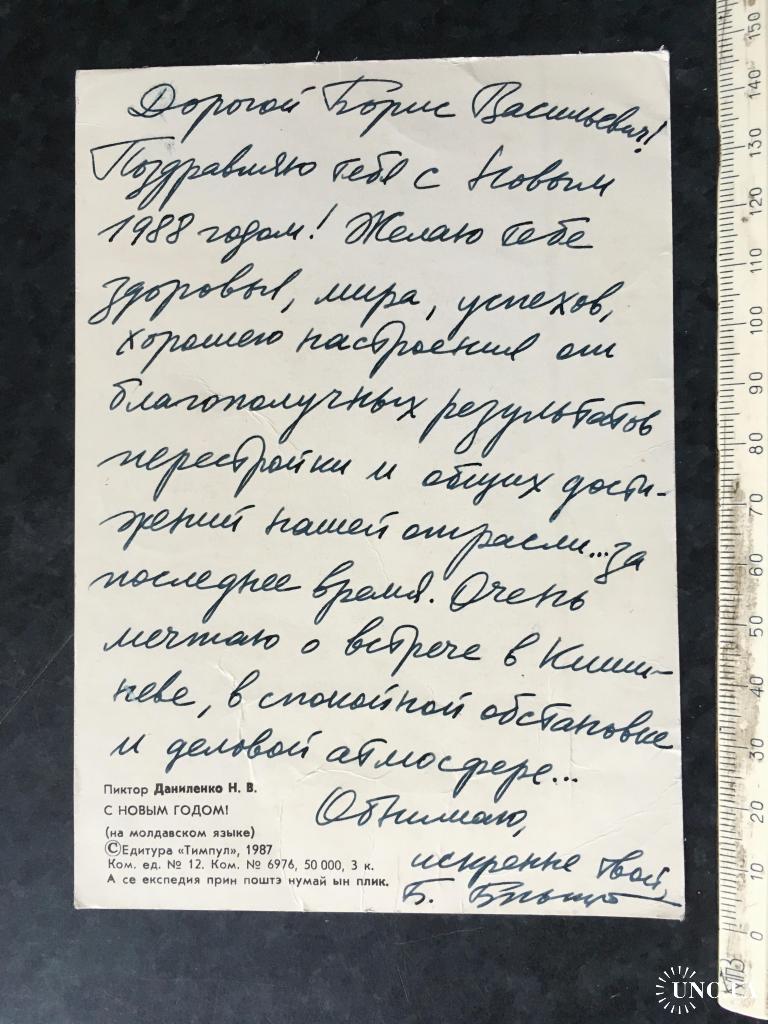 Дорогой Борис Васильевич!
Поздравляю тебя с Новым
1988 годом! Желаю тебе
здоровья, мира, успехов,
хорошего настроения от
благополучных результатов
перестройки и общих дости-
жений нашей отрасли... за
последнее время. Очень
мечтаю о встрече в Киши-
неве, в спокойной обстановке
и деловой атмосфере...
Обнимаю,
искренне твой,
Б.
Пиктор Даниленко Н. В.
С НОВЫМ ГОДОМ!
(на молдавском языке)
© Едитура «Тимпул», 1987
Ком. ед. № 12. Ком. № 6976, 50 000, 3 к.
А се експедия прин поштэ нумай ын плик.
150
140
130
120
110
100
90
80
70
60
50
40
30
20
10
0